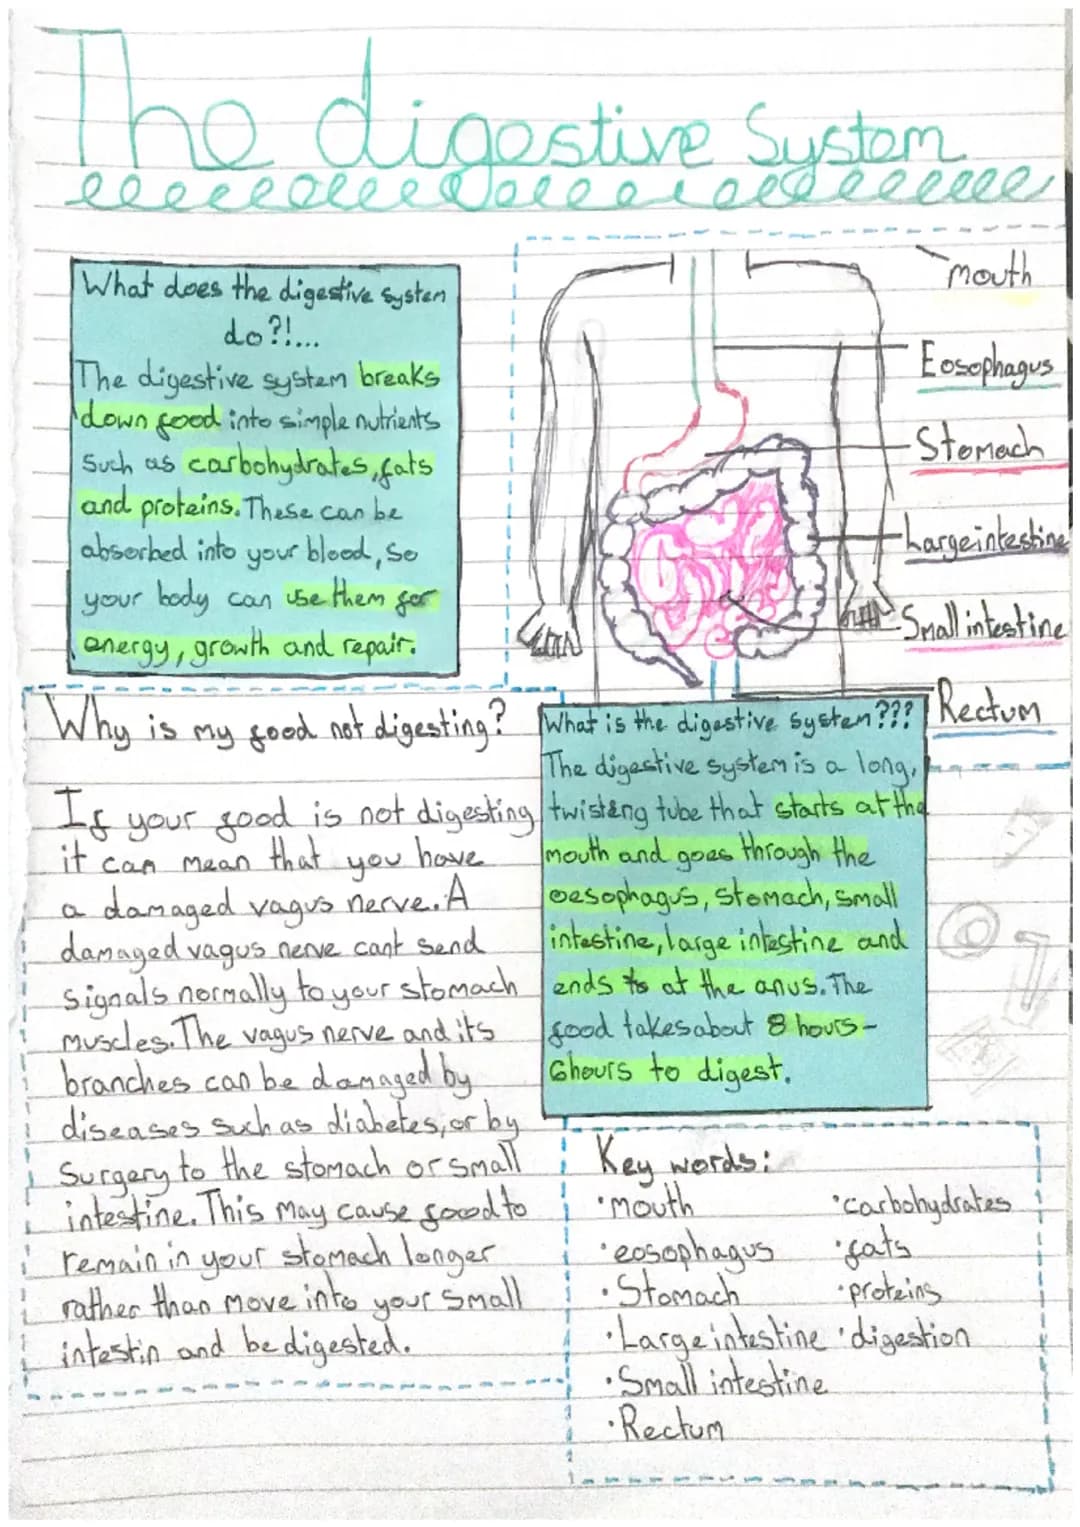 The digestive System
What does the digestive system
do?!...
The digestive system breaks
down food into simple nutrients
Such as carbohydrates, fats
and proteins. These can be
absorbed into your blood, So
your body can use them for
energy, growth and repair.
mouth
Eosophagus
Stomach
Large intestine
Small intestine
Rectum
Why is my food not digesting?
If your food is not digesting
it can mean that you have
a damaged vagus nerve. A
damaged vagus nerve cant send
signals normally to your stomach
muscles. The vagus nerve and its
branches can be damaged by
diseases such as diabetes, or by
Surgery to the stomach or small
intestine. This may cause food to
remain in your stomach longer
rather than move into your small
intestin and be digested.
What is the digestive system???
The digestive system is a long,
twisting tube that starts at the
mouth and goes through the
oesophagus, stomach, small
intestine, large intestine and
ends at the anus. The
food takes about 8 hours-
6hours to digest.
Key words:
·mouth
·eosophagus
·Stomach
·Large intestine
·Small intestine
·Rectum
·carbohydrates
·fats
·proteins
·digestion